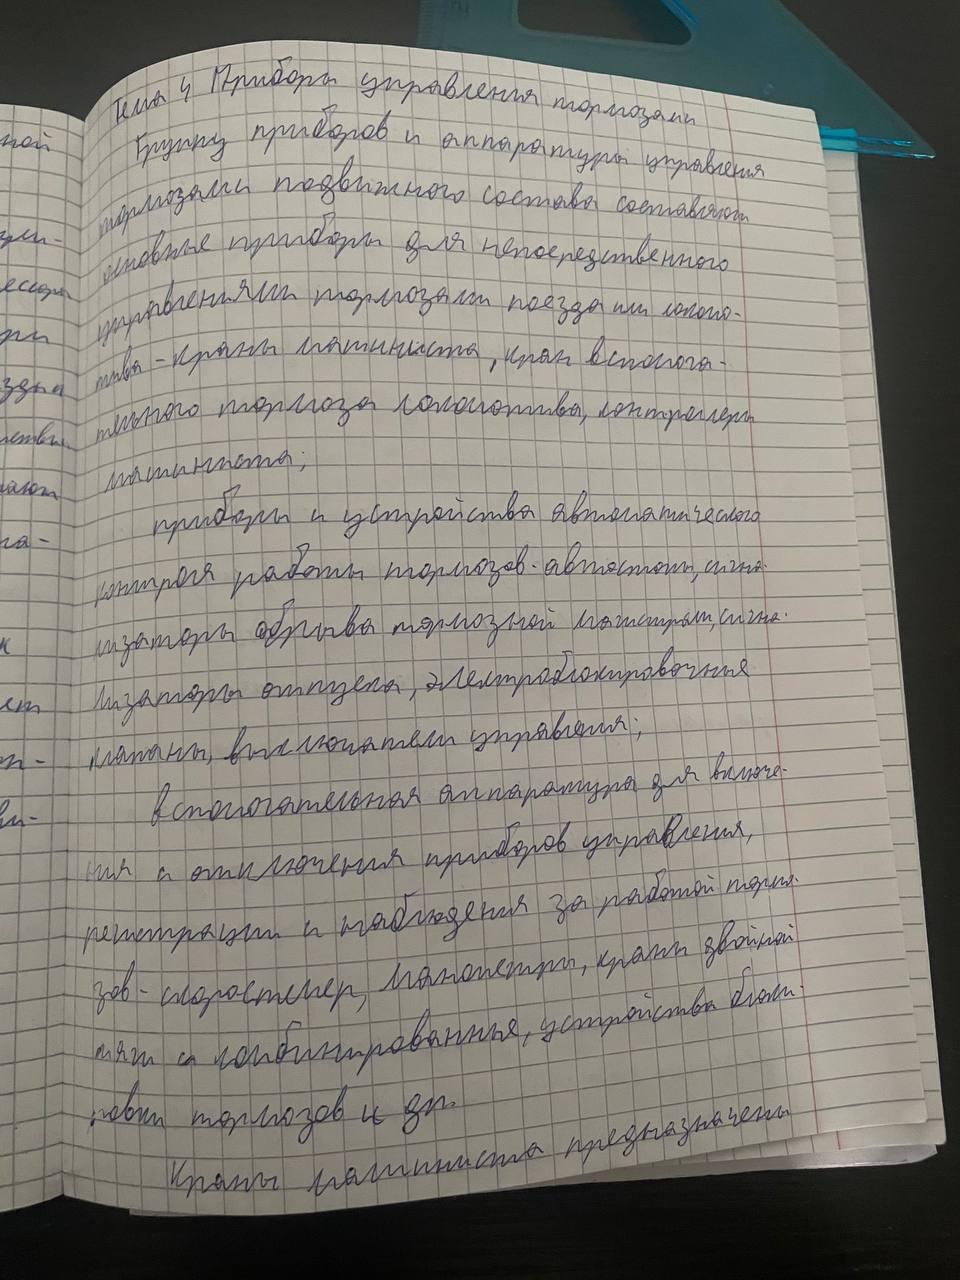 Тема 4 Приборы управления тормозами
Группу приборов и аппаратуры управления
тормозами подвижного состава составляют
основные приборы для непосредственного
управлениями тормозами поезда или локомо-
тива - краны машиниста, кран вспомога-
тельного тормоза локомотива, контроллеры
машиниста;
приборы и устройства автоматического
контроля работы тормозов - автостопы, сигна-
лизаторы обрыва тормозной магистрали, сигна-
лизаторы отпуска, электроблокировочные
клапаны, выключатели управления;
вспомогательная аппаратура для включе-
ния и отключения приборов управления,
регистрации и наблюдения за работой тормо-
зов - скоростемер, манометры, краны двойной
тяги и комбинированные, устройства блоки-
ровки тормозов и др.
Краны машиниста предназначены
ной
ули-
ессоры
при
ма-
к
ет
ви-